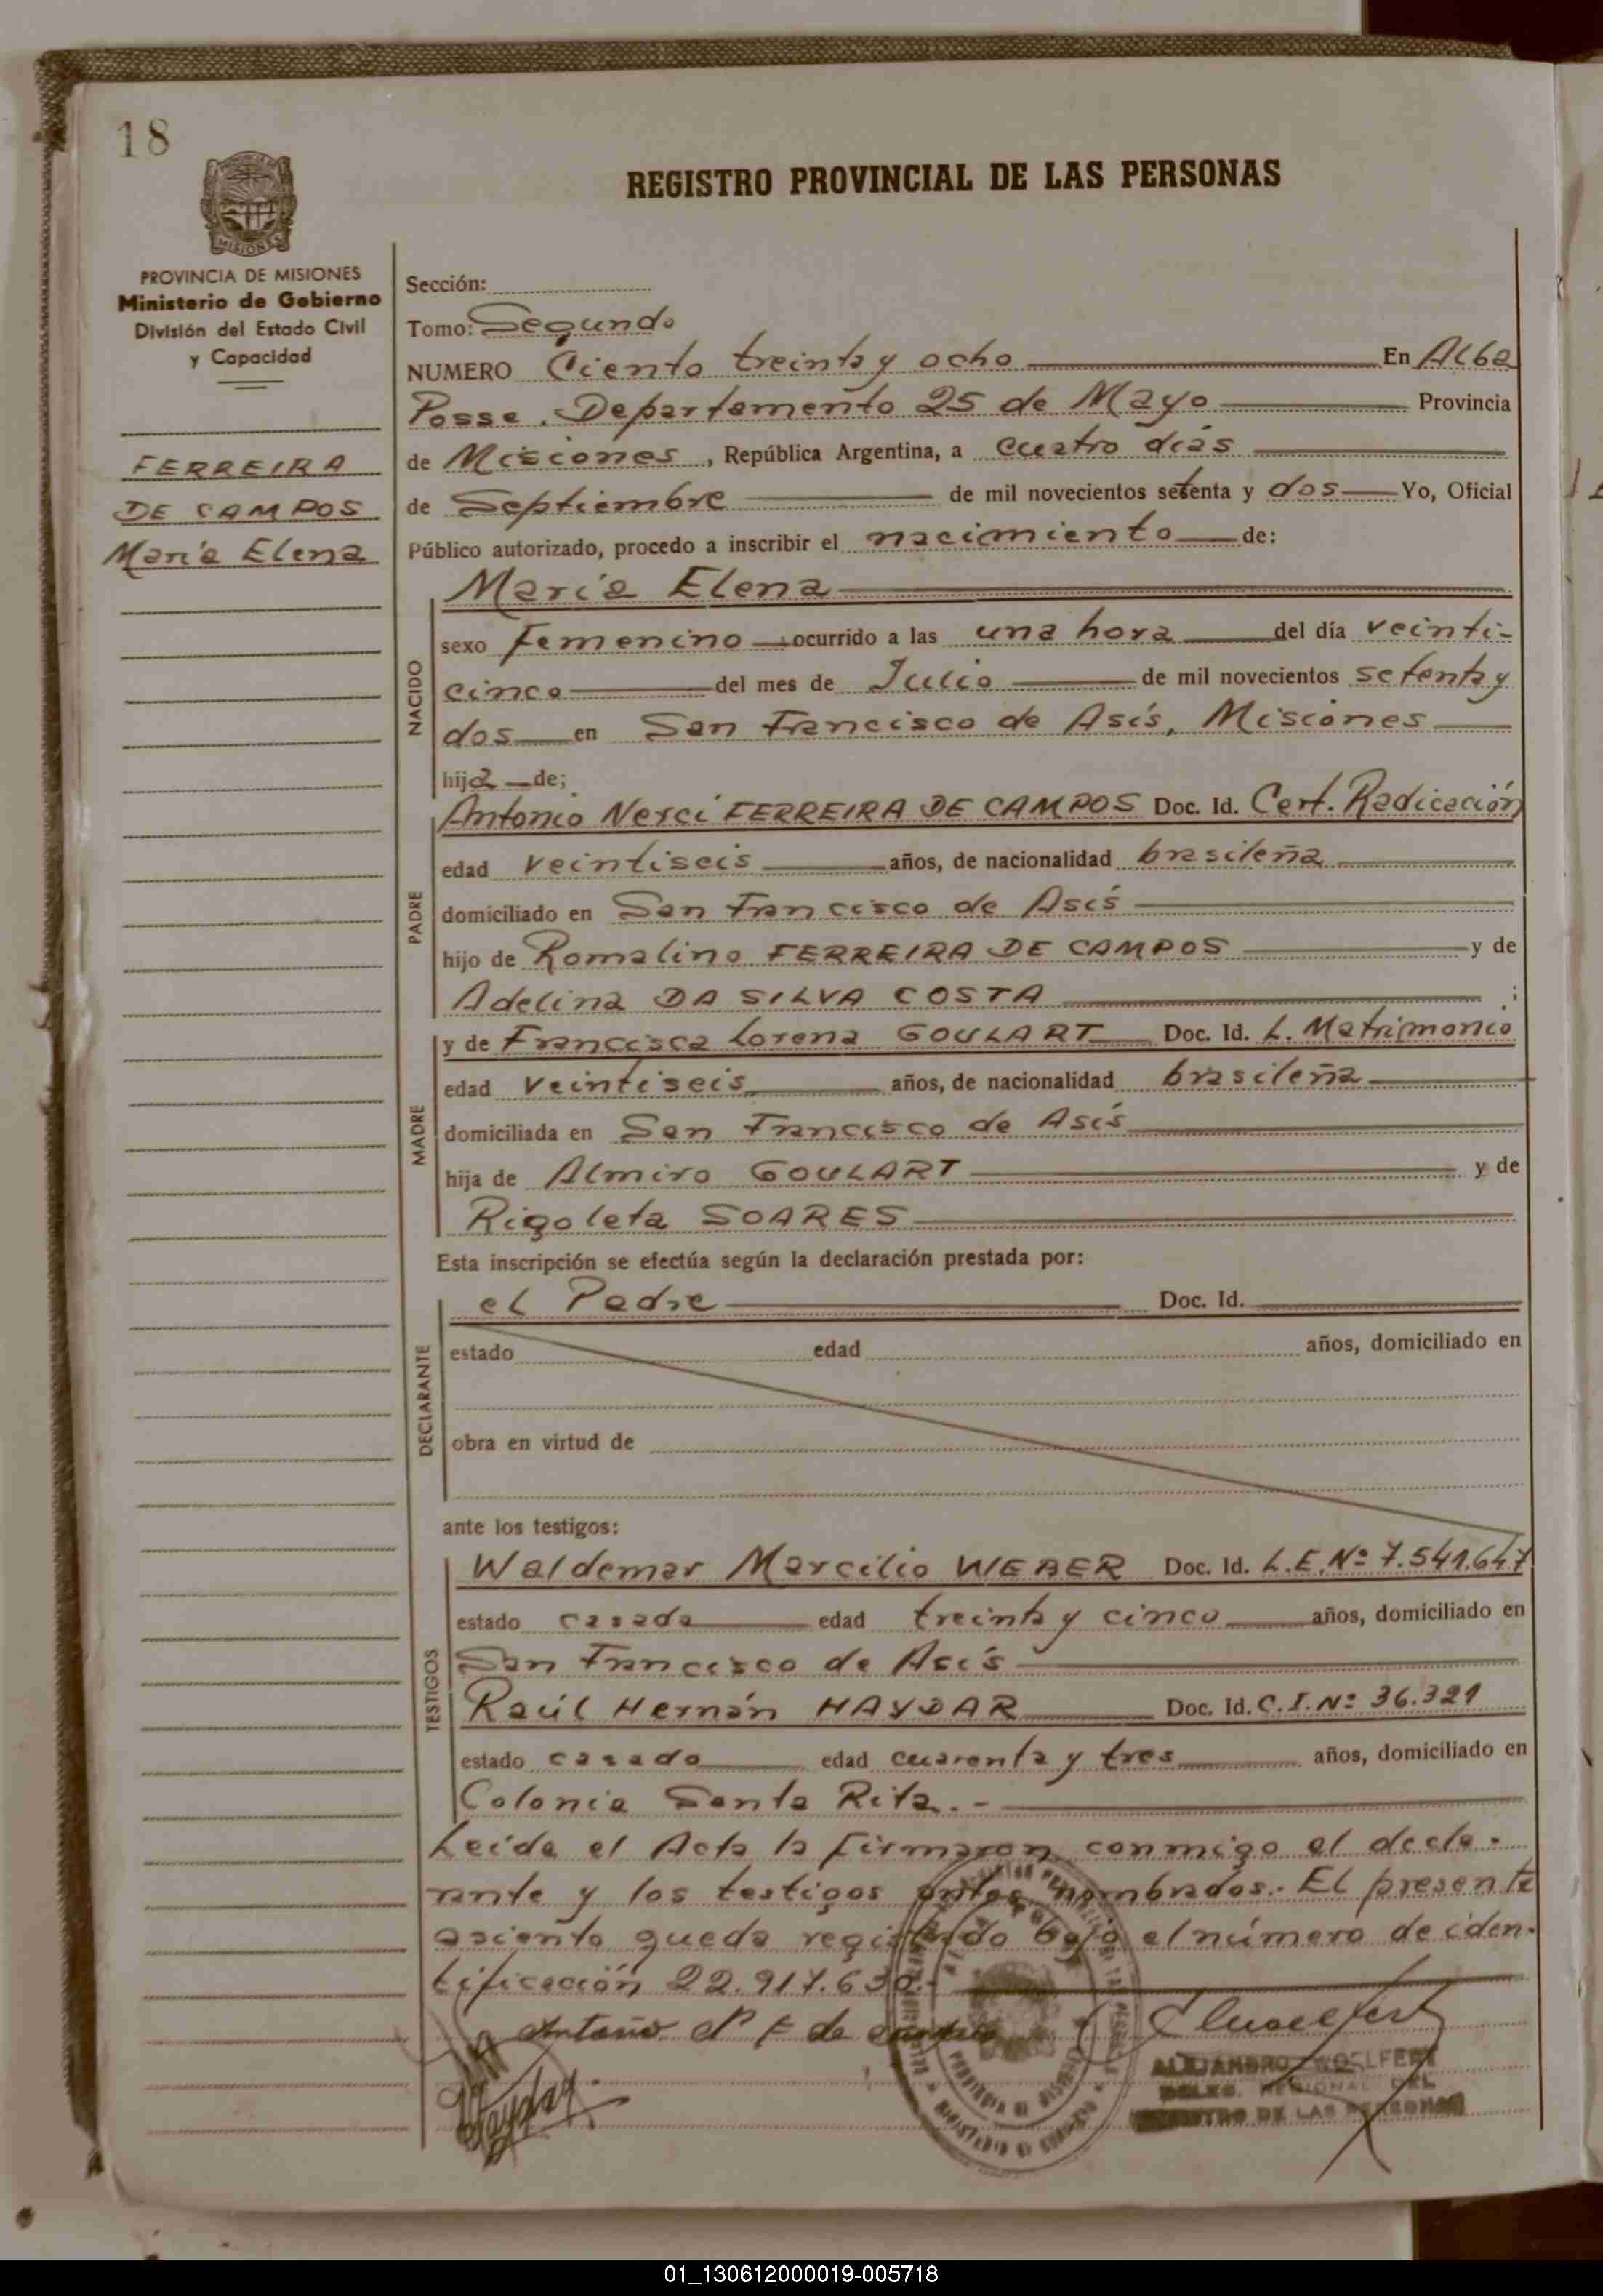 18
REGISTRO PROVINCIAL DE LAS PERSONAS
MISIONES
PROVINCIA DE MISIONES
Ministerio de Gobierno
División del Estado Civil
y Capacidad
FERREIRA
DE CAMPOS
María Elena
Sección:
Tomo: Segundo
NUMERO Ciento treinta y ocho En Alba
Posse, Departamento 25 de Mayo Provincia
de Misiones, República Argentina, a cuatro días
de Septiembre de mil novecientos setenta y dos Yo, Oficial
Público autorizado, procedo a inscribir el nacimiento de:
NACIDO
María Elena
sexo femenino ocurrido a las una hora del día veinti-
cinco del mes de Julio de mil novecientos setenta y
dos en San Francisco de Asís, Misiones
hija de;
PADRE
Antonio Nerci FERREIRA DE CAMPOS Doc. Id. Cert. Radicación
edad veintiseis años, de nacionalidad brasileña
domiciliado en San Francisco de Asís
hijo de Romalino FERREIRA DE CAMPOS y de
Adelina DA SILVA COSTA ;
MADRE
y de Francisca Lorena GOULART Doc. Id. L. Matrimonio
edad veintiseis años, de nacionalidad brasileña
domiciliada en San Francisco de Asís
hija de Almiro GOULART y de
Rigoleta SOARES
Esta inscripción se efectúa según la declaración prestada por:
DECLARANTE
el Padre Doc. Id.
estado edad años, domiciliado en
obra en virtud de
ante los testigos:
TESTIGOS
Waldemar Marcilio WEBER Doc. Id. L.E. Nº 7.541.647
estado casado edad treinta y cinco años, domiciliado en
San Francisco de Asís
Raúl Hernán HAYDAR Doc. Id. C.I. Nº 36.321
estado casado edad cuarenta y tres años, domiciliado en
Colonia Santa Rita.-
Leida el Acta la firmaron conmigo el decla-
rante y los testigos antes nombrados.- El presente
asiento queda registrado bajo el número de iden-
tificación 22.917.630.-
Antonio N F de campos
ALEJANDRO WOELFERT
DELEG. REGIONAL DEL
REGISTRO DE LAS PERSONAS
01_130612000019-005718